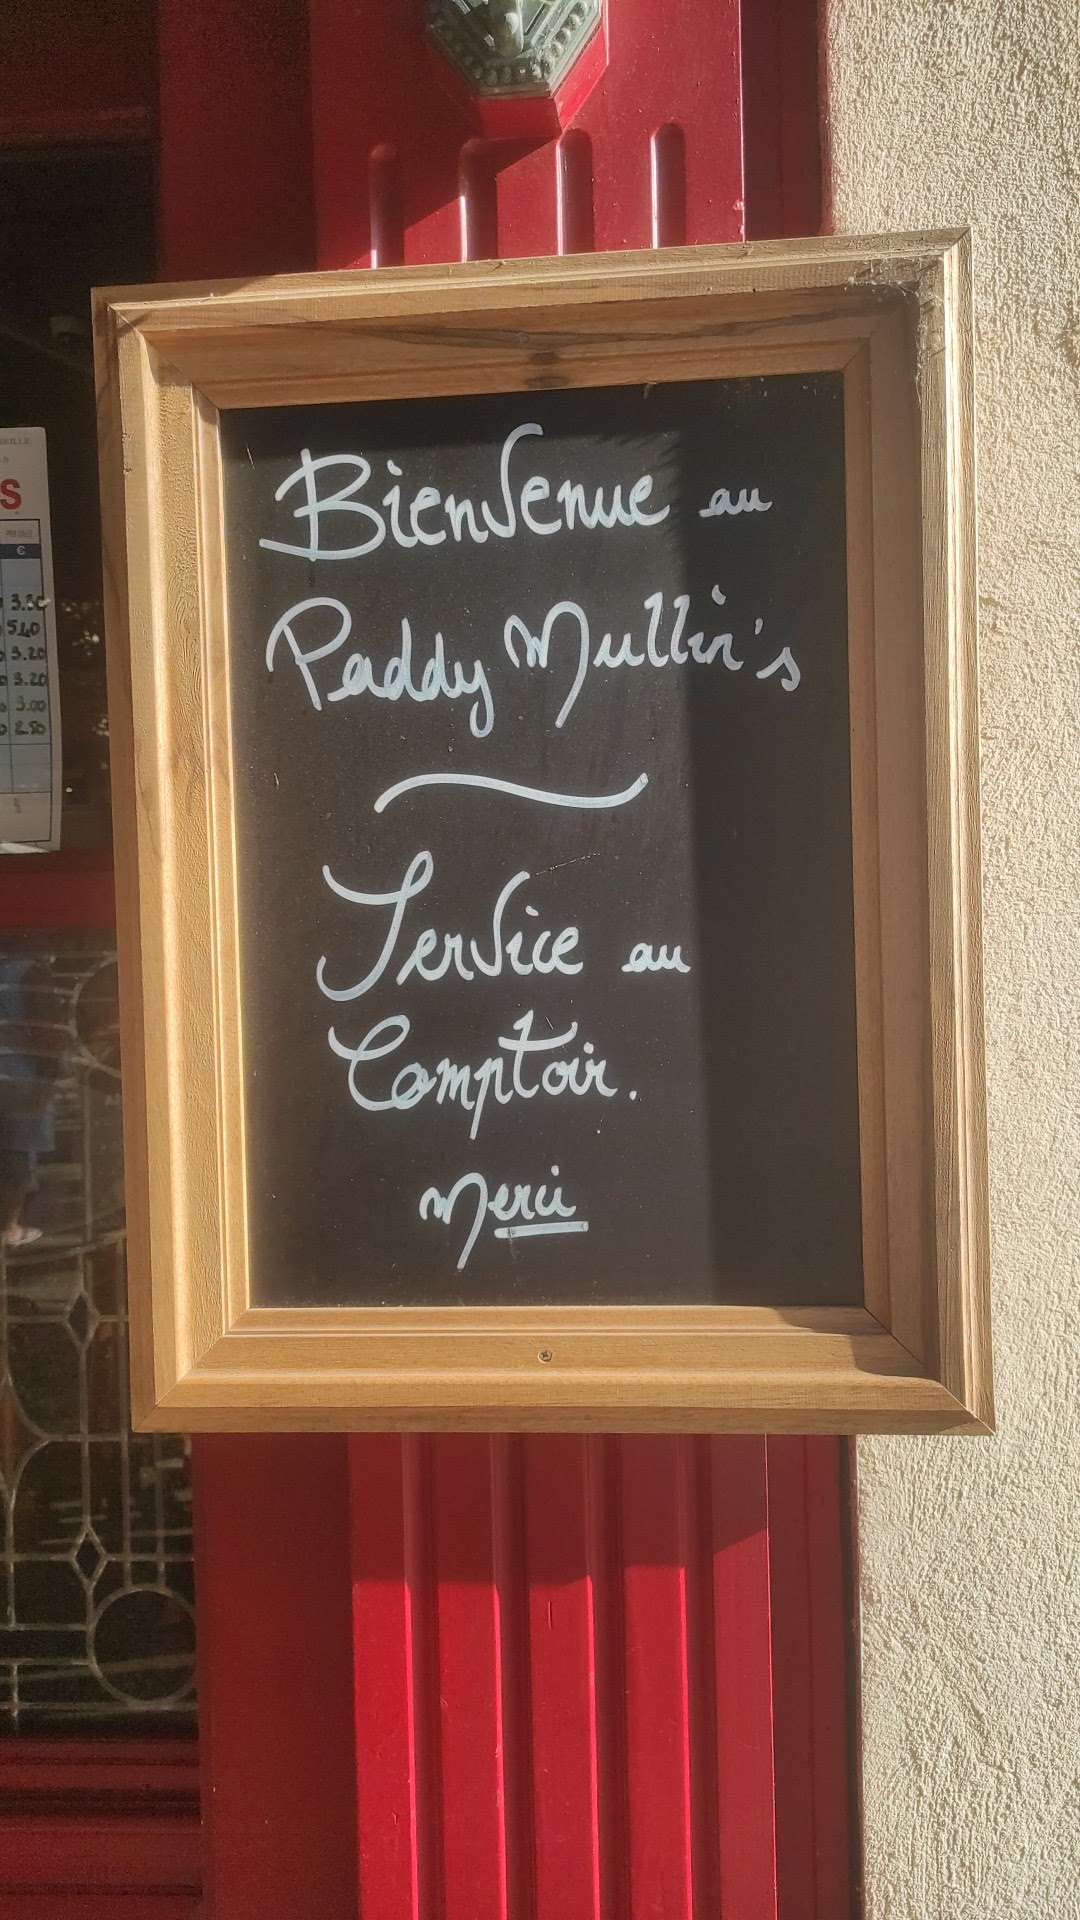 Bienvenue au
Paddy Mullin's
Service au
Comptoir.
Merci
S
€
3.20
3.20
3.00
2.50